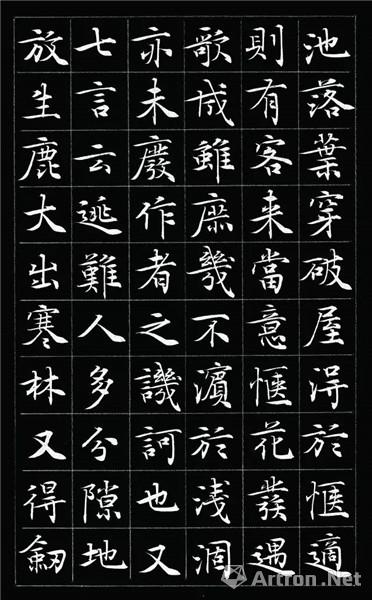 池落葉穿破屋淂於愜適
則有客来當意愜花發遇
歌成雖庶幾不濱於浅涸
亦未廢作者之譏訶也又
七言云逃難人多分隙地
放生鹿大出寒林又得劒
Artron.Net